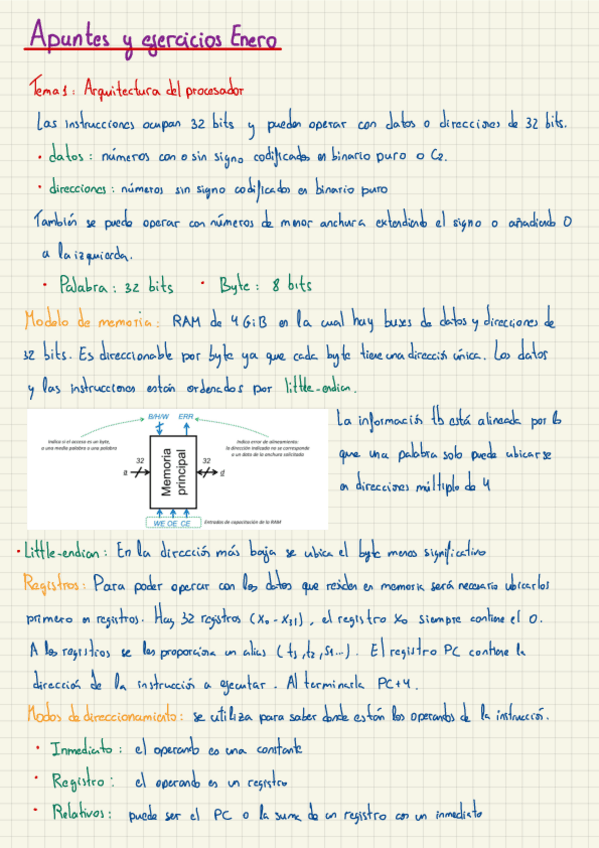 Apuntes y ejercicios Enero
Tema 1: Arquitectura del procesador
Las instrucciones ocupan 32 bits y pueden operar con datos o direcciones de 32 bits.
• datos: números con o sin signo codificados en binario puro o C2.
• direcciones: números sin signo codificados en binario puro
También se puede operar con números de menor anchura extendiendo el signo o añadiendo 0
a la izquierda.
• Palabra: 32 bits • Byte: 8 bits
Modelo de memoria: RAM de 4 GiB en la cual hay buses de datos y direcciones de
32 bits. Es direccionable por byte ya que cada byte tiene una dirección única. Los datos
y las instrucciones están ordenados por little-endian.
B/H/W ERR
Indica si el acceso es un byte,
a una media palabra o una palabra
Indica error de alineamiento:
la dirección indicada no se corresponde
a un dato de la anchura solicitada
32 32
a d
Memoria
principal
WE OE CE
Entradas de capacitación de la RAM
La información tb está alineada por lo
que una palabra solo puede ubicarse
en direcciones múltiplo de 4
• Little-endian: En la dirección más baja se ubica el byte menos significativo
Registros: Para poder operar con los datos que residen en memoria será necesario ubicarlos
primero en registros. Hay 32 registros (x0 - x31), el registro x0 siempre contiene el 0.
A los registros se les proporciona un alias (t1, t2, s1...). El registro PC contiene la
dirección de la instrucción a ejecutar. Al terminarla PC+4.
Modos de direccionamiento: se utiliza para saber donde están los operandos de la instrucción.
• Inmediato: el operando es una constante
• Registro: el operando es un registro
• Relativos: puede ser el PC o la suma de un registro con un inmediato